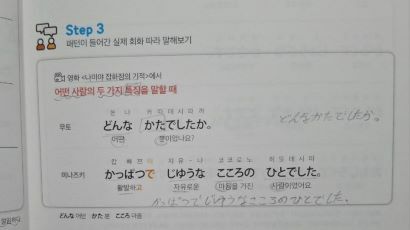 Step 3
패턴이 들어간 실제 회화 따라 말해보기
영화 <나미야 잡화점의 기적>에서
어떤 사람의 두 가지 특징을 말할 때
돈 나 카타데시타카
무토 どんな かたでしたか。 どんなかたでしたか。
어떤 분이었나요?
캅 빠쯔데 지유-나 코코로노 히토데시타
미나즈키 かっぱつで じゆうな こころの ひとでした。
활발하고 자유로운 마음을 가진 사람이었어요
かっぱつでじゆうなこころのひとでした。
どんな 어떤 かた 분 こころ 마음